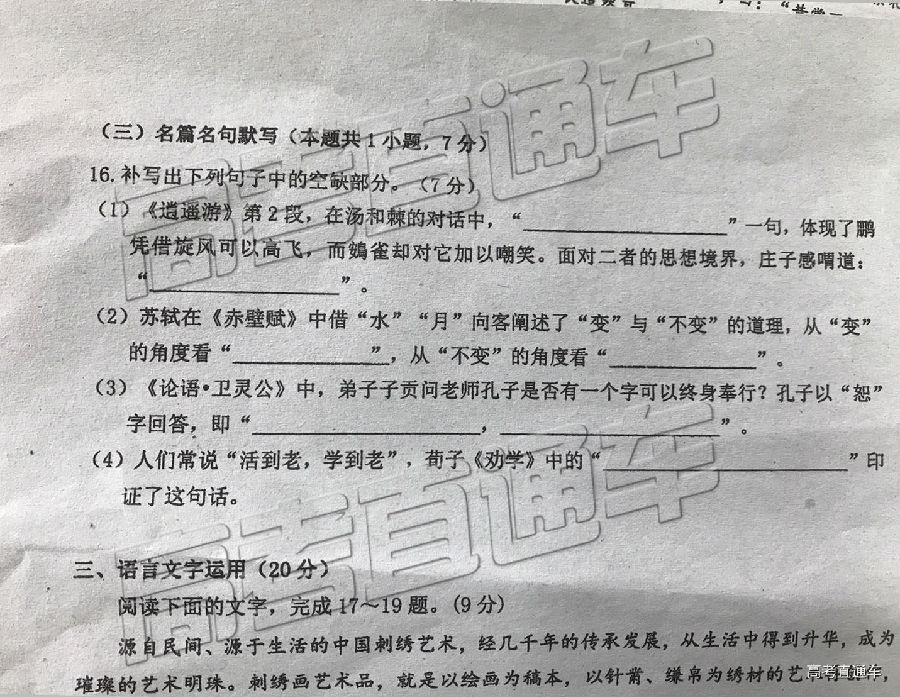 (三)名篇名句默写(本题共1小题,7分)
16.补写出下列句子中的空缺部分。(7分)
(1)《逍遥游》第2段,在汤和棘的对话中,“____________________”一句,体现了鹏
凭借旋风可以高飞,而鴳雀却对它加以嘲笑。面对二者的思想境界,庄子感喟道:
“____________________”。
(2)苏轼在《赤壁赋》中借“水”“月”向客阐述了“变”与“不变”的道理,从“变”
的角度看“______________”,从“不变”的角度看“______________”。
(3)《论语·卫灵公》中,弟子子贡问老师孔子是否有一个字可以终身奉行?孔子以“恕”
字回答,即“____________________,____________________”。
(4)人们常说“活到老,学到老”,荀子《劝学》中的“______________________”印
证了这句话。
三、语言文字运用(20分)
阅读下面的文字,完成17~19题。(9分)
源自民间、源于生活的中国刺绣艺术,经几千年的传承发展,从生活中得到升华,成为
璀璨的艺术明珠。刺绣画艺术品,就是以绘画为稿本,以针黹、缣帛为绣材的艺
高考直通车
高考直通车
高考直通车